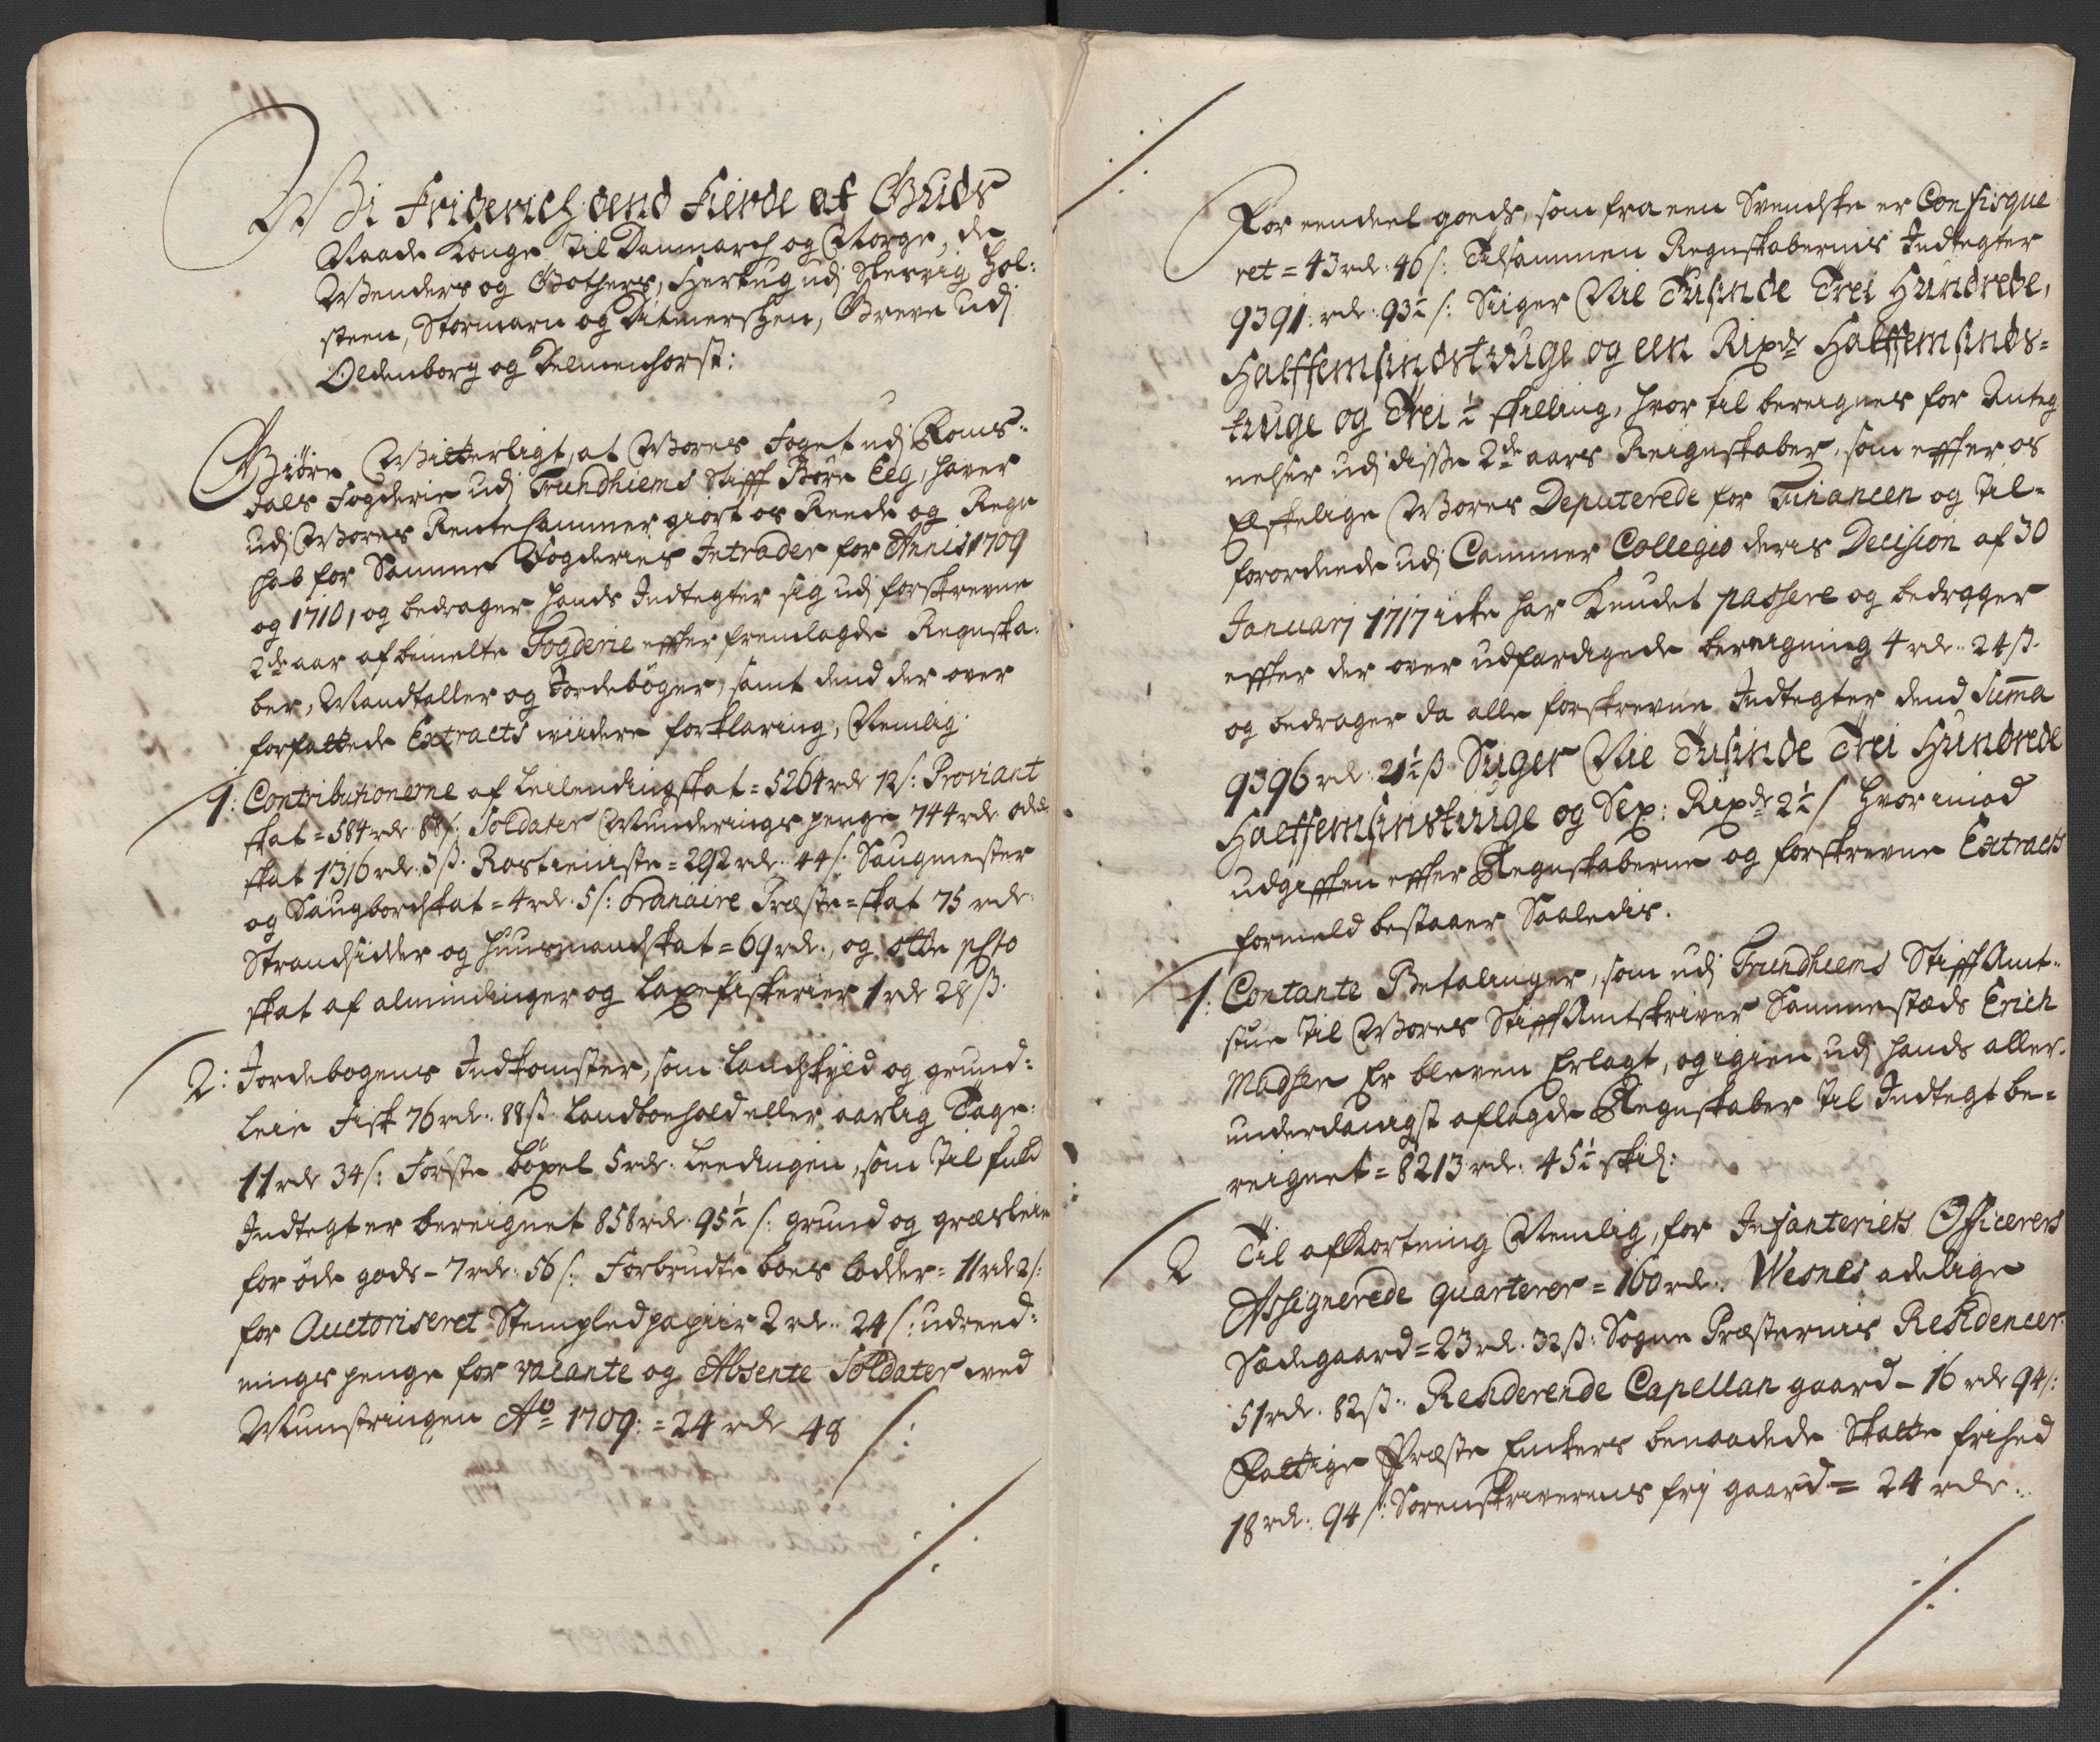 Wi Friderich dend Fierde af Guds
Naade Konge til Danmarch og Norge, de
Wenders og Gothers, Hertug udj Slesvig Hol:
steen, Stormarn og Ditmerschen, Greve udj
Oldenborg og Delmenhorst:
Giöre Witterligt, at Wores Foget udj Roms-
dals Fogderie udj Trundhiems Stifft Söre Eeg, haver
udj Wores Rentekammer giort os Reede og Regn
skab for Samme Fogderies Intrader for Annis 1709
og 1710, og bedrager hands Indtegter sig udj forskrevne
2de aar af bemelte Fogderie effter fremlagde Regnska-
ber, Mandtaller og Jordebøger, samt dend der over
forfattede Extracts viidere forklaring, Nemlig:
1: Contributionerne af Leilendingskat = 5264 rdr 12 s: Proviant
skat = 584 rdr 88 s: Soldater Munderings penge 744 rdr odels
skat 1316 rdr. 3 ß. Rostieniste = 292 rdr. 44 s: Saugmester
og Saugbordskat = 4 rdr. 5 s: Ordinaire Præste-skat 75 rdr.
Strandsidder og Huusmandskat = 69 rdr., og otte pCto
skat af alminding og Laxefiskerier 1 rdr 28 ß.
2: Jordebogens Indkomster, som Landskyld og grund:
leie Fisk 76 rdr. 88 ß. Landboehold eller aarlig Tage:
11 rdr 34 s: Første böxel 5 rdr. Leedingen, som til fuld
Indtegt er bereignet 858 rdr. 95½ s: grund og græsleie
for øde gods - 7 rdr. 56 s: Forbrudte boes lodder = 11 rdr 2 s:
for Auctoriseret Stempled papiir 2 rdr. 24 s: udreed:
nings penge for vacante og Absente Soldater ved
Munstringen Ao 1709: = 24 rdr 48 s:
For eendeel goeds, som fra een Svendske er Confisque
ret = 43 rdr. 46 s: Tilsammen Regnskabernis Indtegter
9391: rdr. 93½ s: Siiger Nie Tusinde Trei Hundrede,
Halffemsindstiuge og een Rixdr Halffemsinds-
tiuge og Trei ½ skilling, hvor til bereignes for Anteg
nelser udj disse 2de aars Reignskaber, som effter os
Elskelige Wores Deputerede for Financen og til-
forordnede udj Cammer Collegio deris Decision af 30
Januarj 1717 icke har kundet passere og bedrager
effter der over udfærdigede bereigning 4 rdr. 24 ß.
og bedrager da alle forskrevne Indtegter dend Summa
9396 rdr. 21½ ß Siiger Nie Tusinde Trei Hundrede
Halffemsinstiuge og Sex: Rixdr 21½ s Hvor imod
udgifften effter Regnskaberne og forskrevne Extracts
formeld bestaaer Saaledis.
1: Contante Betalinger, som udj Trundhiems Stifft Amt-
stue til Wores Stifft Amtskriver Sammestæds Erich
Madsen Er bleven Erlagt, og igien udj hands aller-
underdanigst aflagde Regnskaber til Indtegt be-
reignet = 8213 rdr. 45½ skil:
2 Til afkortning Nemlig, for Infanteriets Officerers
Assignerede quarterer = 160 rdr. Wesnes adelige
Sædegaard = 23 rdr. 32 ß: Sogne Præsternis Residencer
51 rdr. 82 ß. Residerende Capellan gaard - 16 rdr 94 s:
Fattige Præste Enkers benaadede Skatte frihed
18 rdr. 94 s: Sorenskriverens frj gaard = 24 rdr.